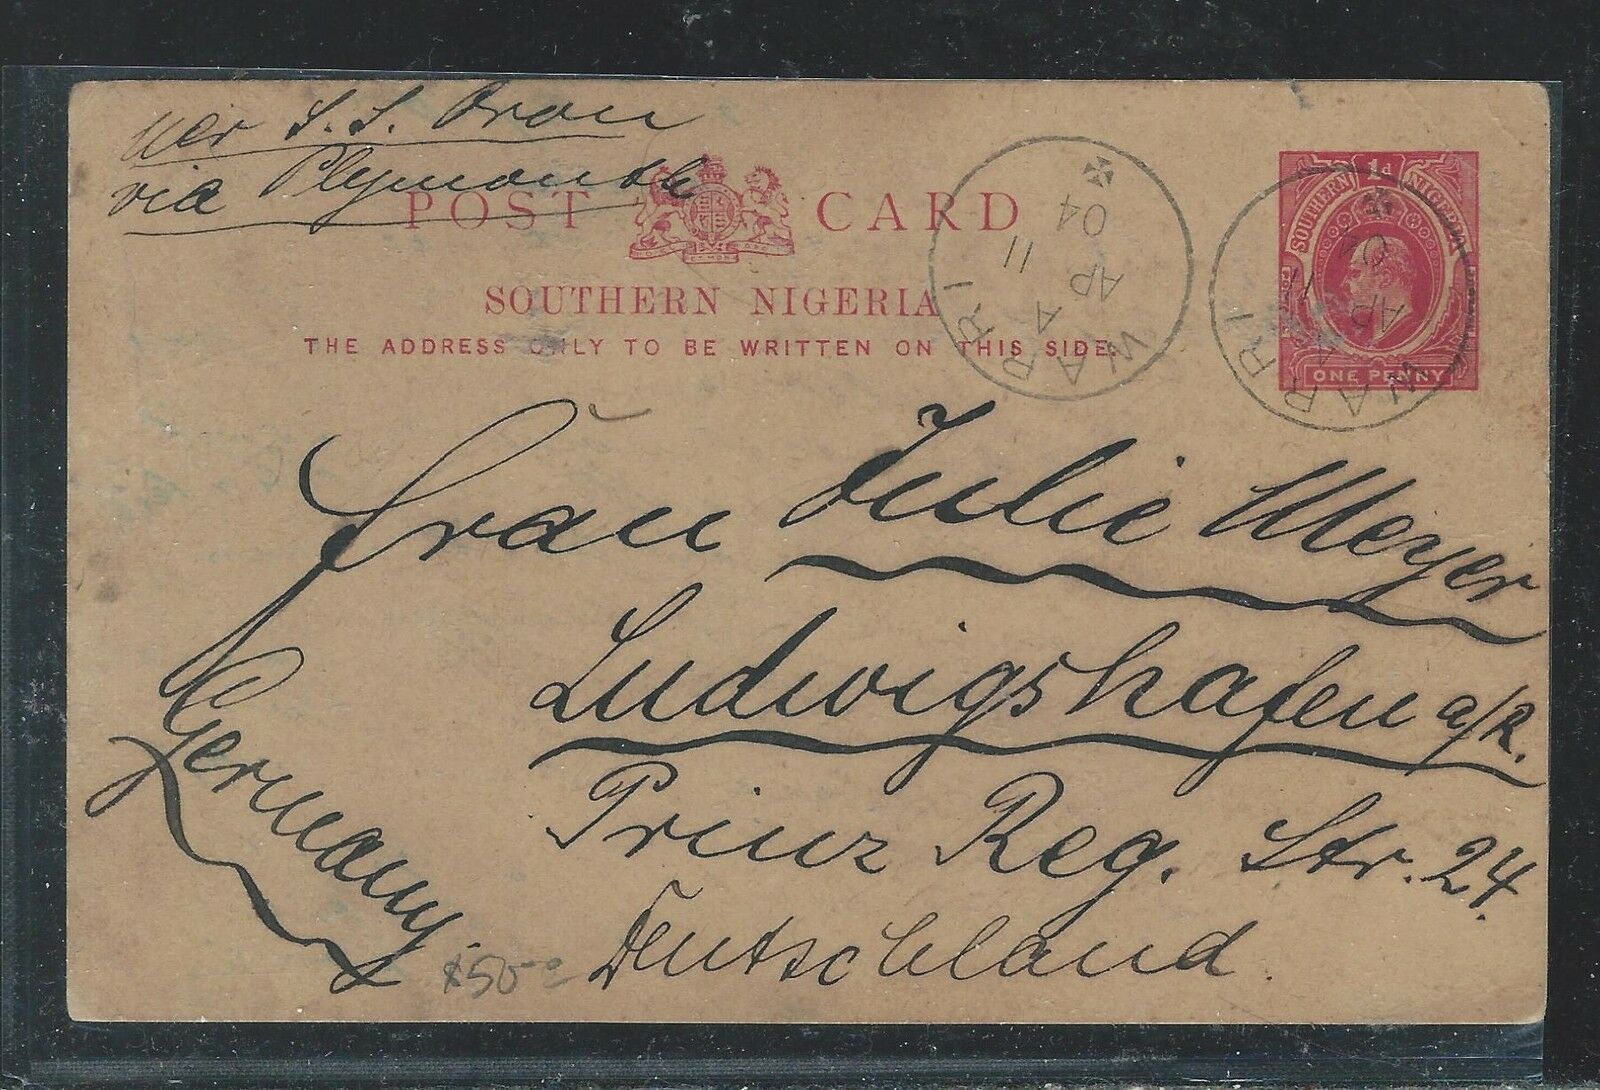 per S.S. Oron
via Plymouth
POST CARD
SOUTHERN NIGERIA
THE ADDRESS ONLY TO BE WRITTEN ON THIS SIDE.
WARRI
A
AP 11
04
WARRI
A
AP 11
04
1d
SOUTHERN NIGERIA
ONE PENNY
Frau Julie Meyer
Ludwigshafen a/R.
Prinz Reg. Str. 24.
Deutschland.
Germany.
$50-